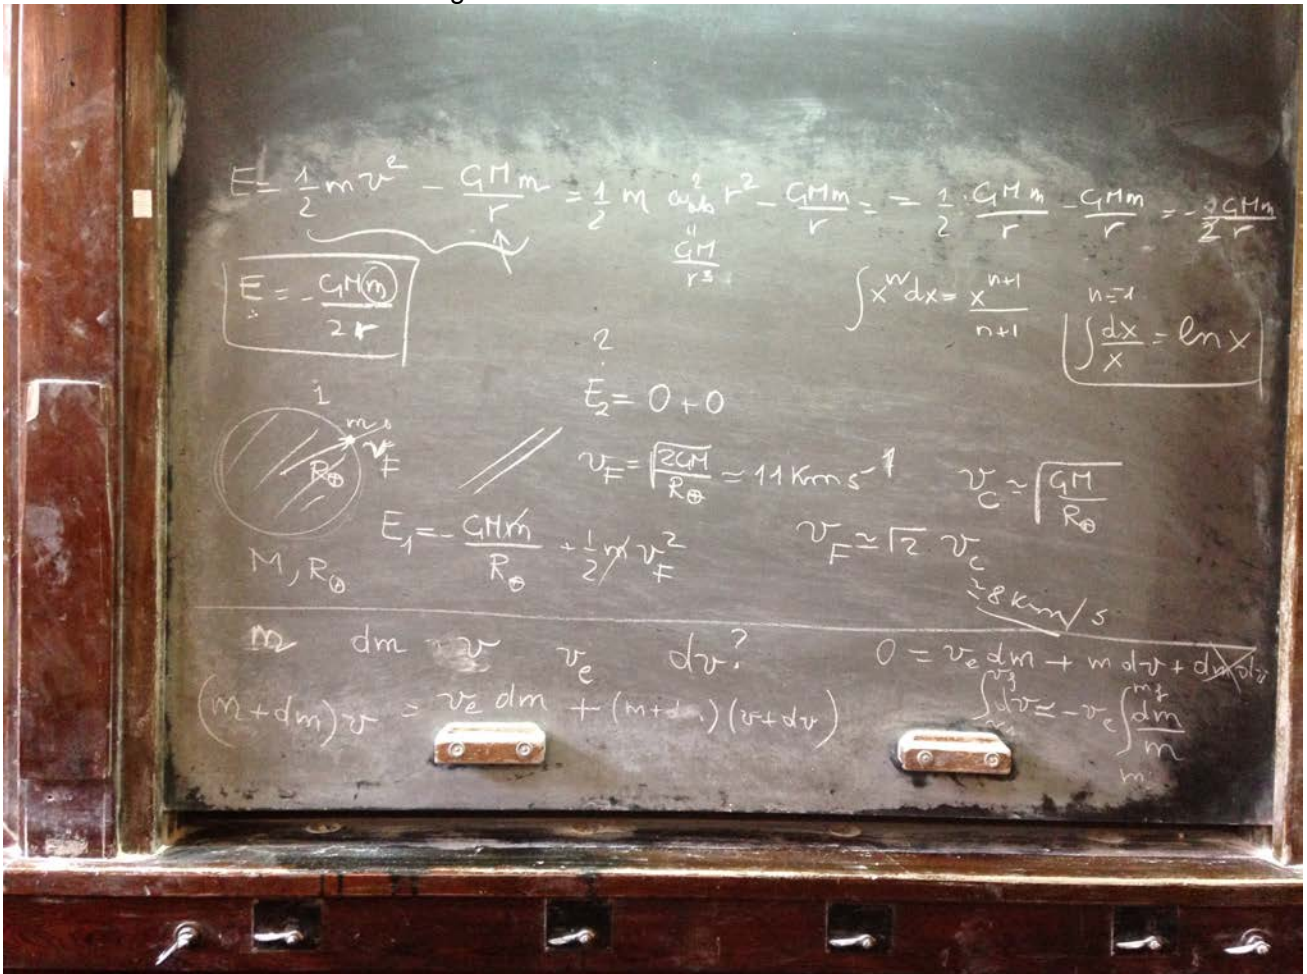 E = 1/2 m v² - GMm/r = 1/2 m ω² r² - GMm/r = = 1/2 · GMm/r - GMm/r = - GMm/2r
GM/r³
E = - GMm/2r
∫ xⁿ dx = xⁿ⁺¹/n+1
n=-1
∫ dx/x = ln x
2
E₂ = 0 + 0
1
m
v_F
R⊕
v_F = √(2GM/R⊕) ≃ 11 Km s⁻¹
v_c ≃ √(GM/R⊕)
E₁ = - GMm/R⊕ + 1/2 m v_F²
v_F ≃ √2 · v_c
≃ 8 Km/s
M, R⊕
m dm v v_e dv?
0 = v_e dm + m dv + dm dv
(m + dm) v = v_e dm + (m + dm)(v + dv)
∫ dv ≃ - v_e ∫ dm/m